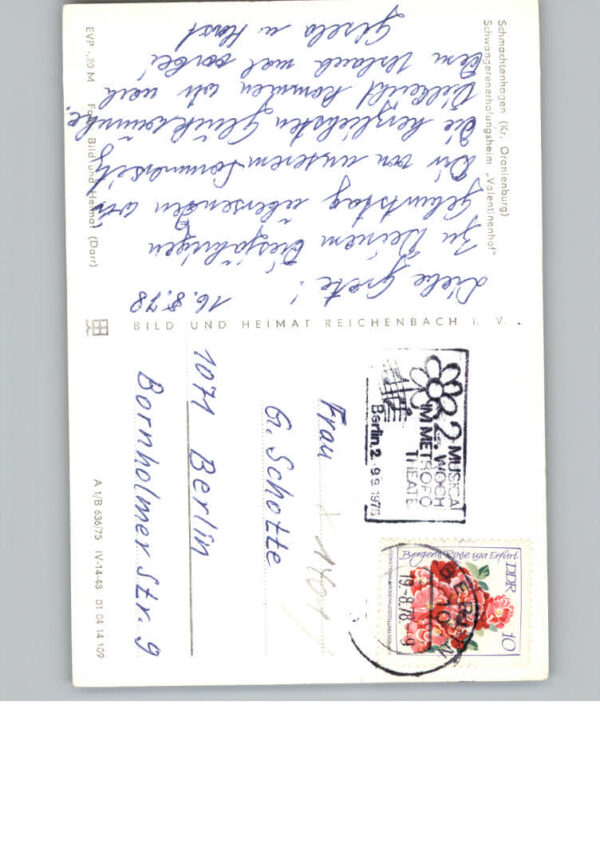 Schmachtenhagen (Kr. Oranienburg)
Schwangerenerholungsheim „Valentinenhof"
16.8.78
Liebe Grete!
Zu Deinem diesjährigen
Geburtstag übersenden wir
Dir von unserem Sommersitz
die herzlichsten Glückwünsche.
Vielleicht kommen wir nach
dem Urlaub mal vorbei
Gisela u Horst
EVP -,20 M Foto: Bild und Heimat (Darr)
BILD UND HEIMAT REICHENBACH i. V.
2. MUSICAL
WOCH
IM METROPO
THEATE
Berlin, 2.-9.9.1978
DDR
10
Bergers Rose iga Erfurt
BERLIN
10
19.-8.78.-9
Frau
G. Schotte
1071 Berlin
Bornholmer Str. 9
A 1/B 636/75 IV-14-43 01 04 14 109